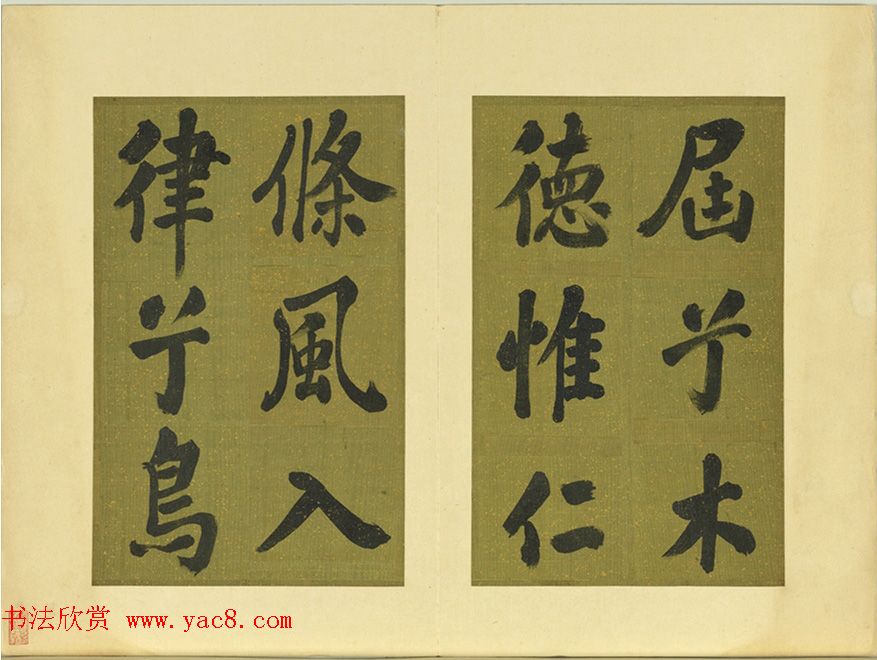 屆兮木
德惟仁
條風入
律兮鳥
书法欣赏 www.yac8.com